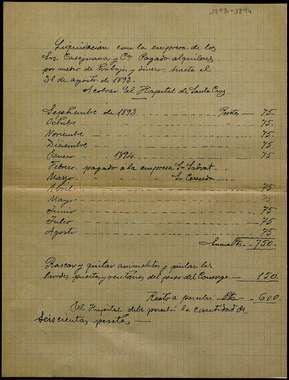 1893-1894
Liquidación con la empresa de los
Srs. Casejuana y Cª Pagado alquileres
por medio de Dibujos y dinero, hasta el
31 de agosto de 1893.
A cobrar del Hospital de Santa Cruz
Septiembre de 1893 Pesetas 75
Octubre 75
Noviembre 75
Diciembre 75
Enero 1894 75
Febrero pagado a la empresa
Marzo
Abril 75
Mayo 75
Junio 75
Julio 75
Agosto 75
Suman 750
Rascar y quitar y pintar las
puerta y ventanas del piso del Conserge 150
Resta a percibir 600
El Hospital debe percibir la cantidad de
Seiscientas pesetas